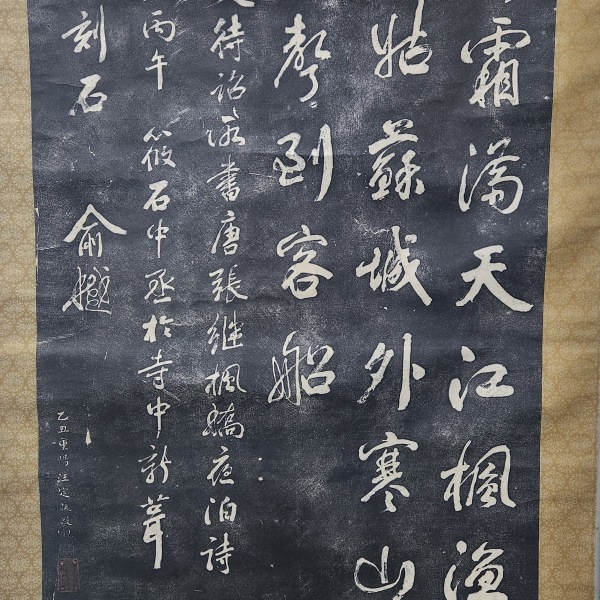 霜滿天江楓漁
姑蘇城外寒山
聲到客船
待詔泳書唐張繼楓橋夜泊詩
丙午 筱石中丞於寺中新葺
刻石
俞樾
乙丑